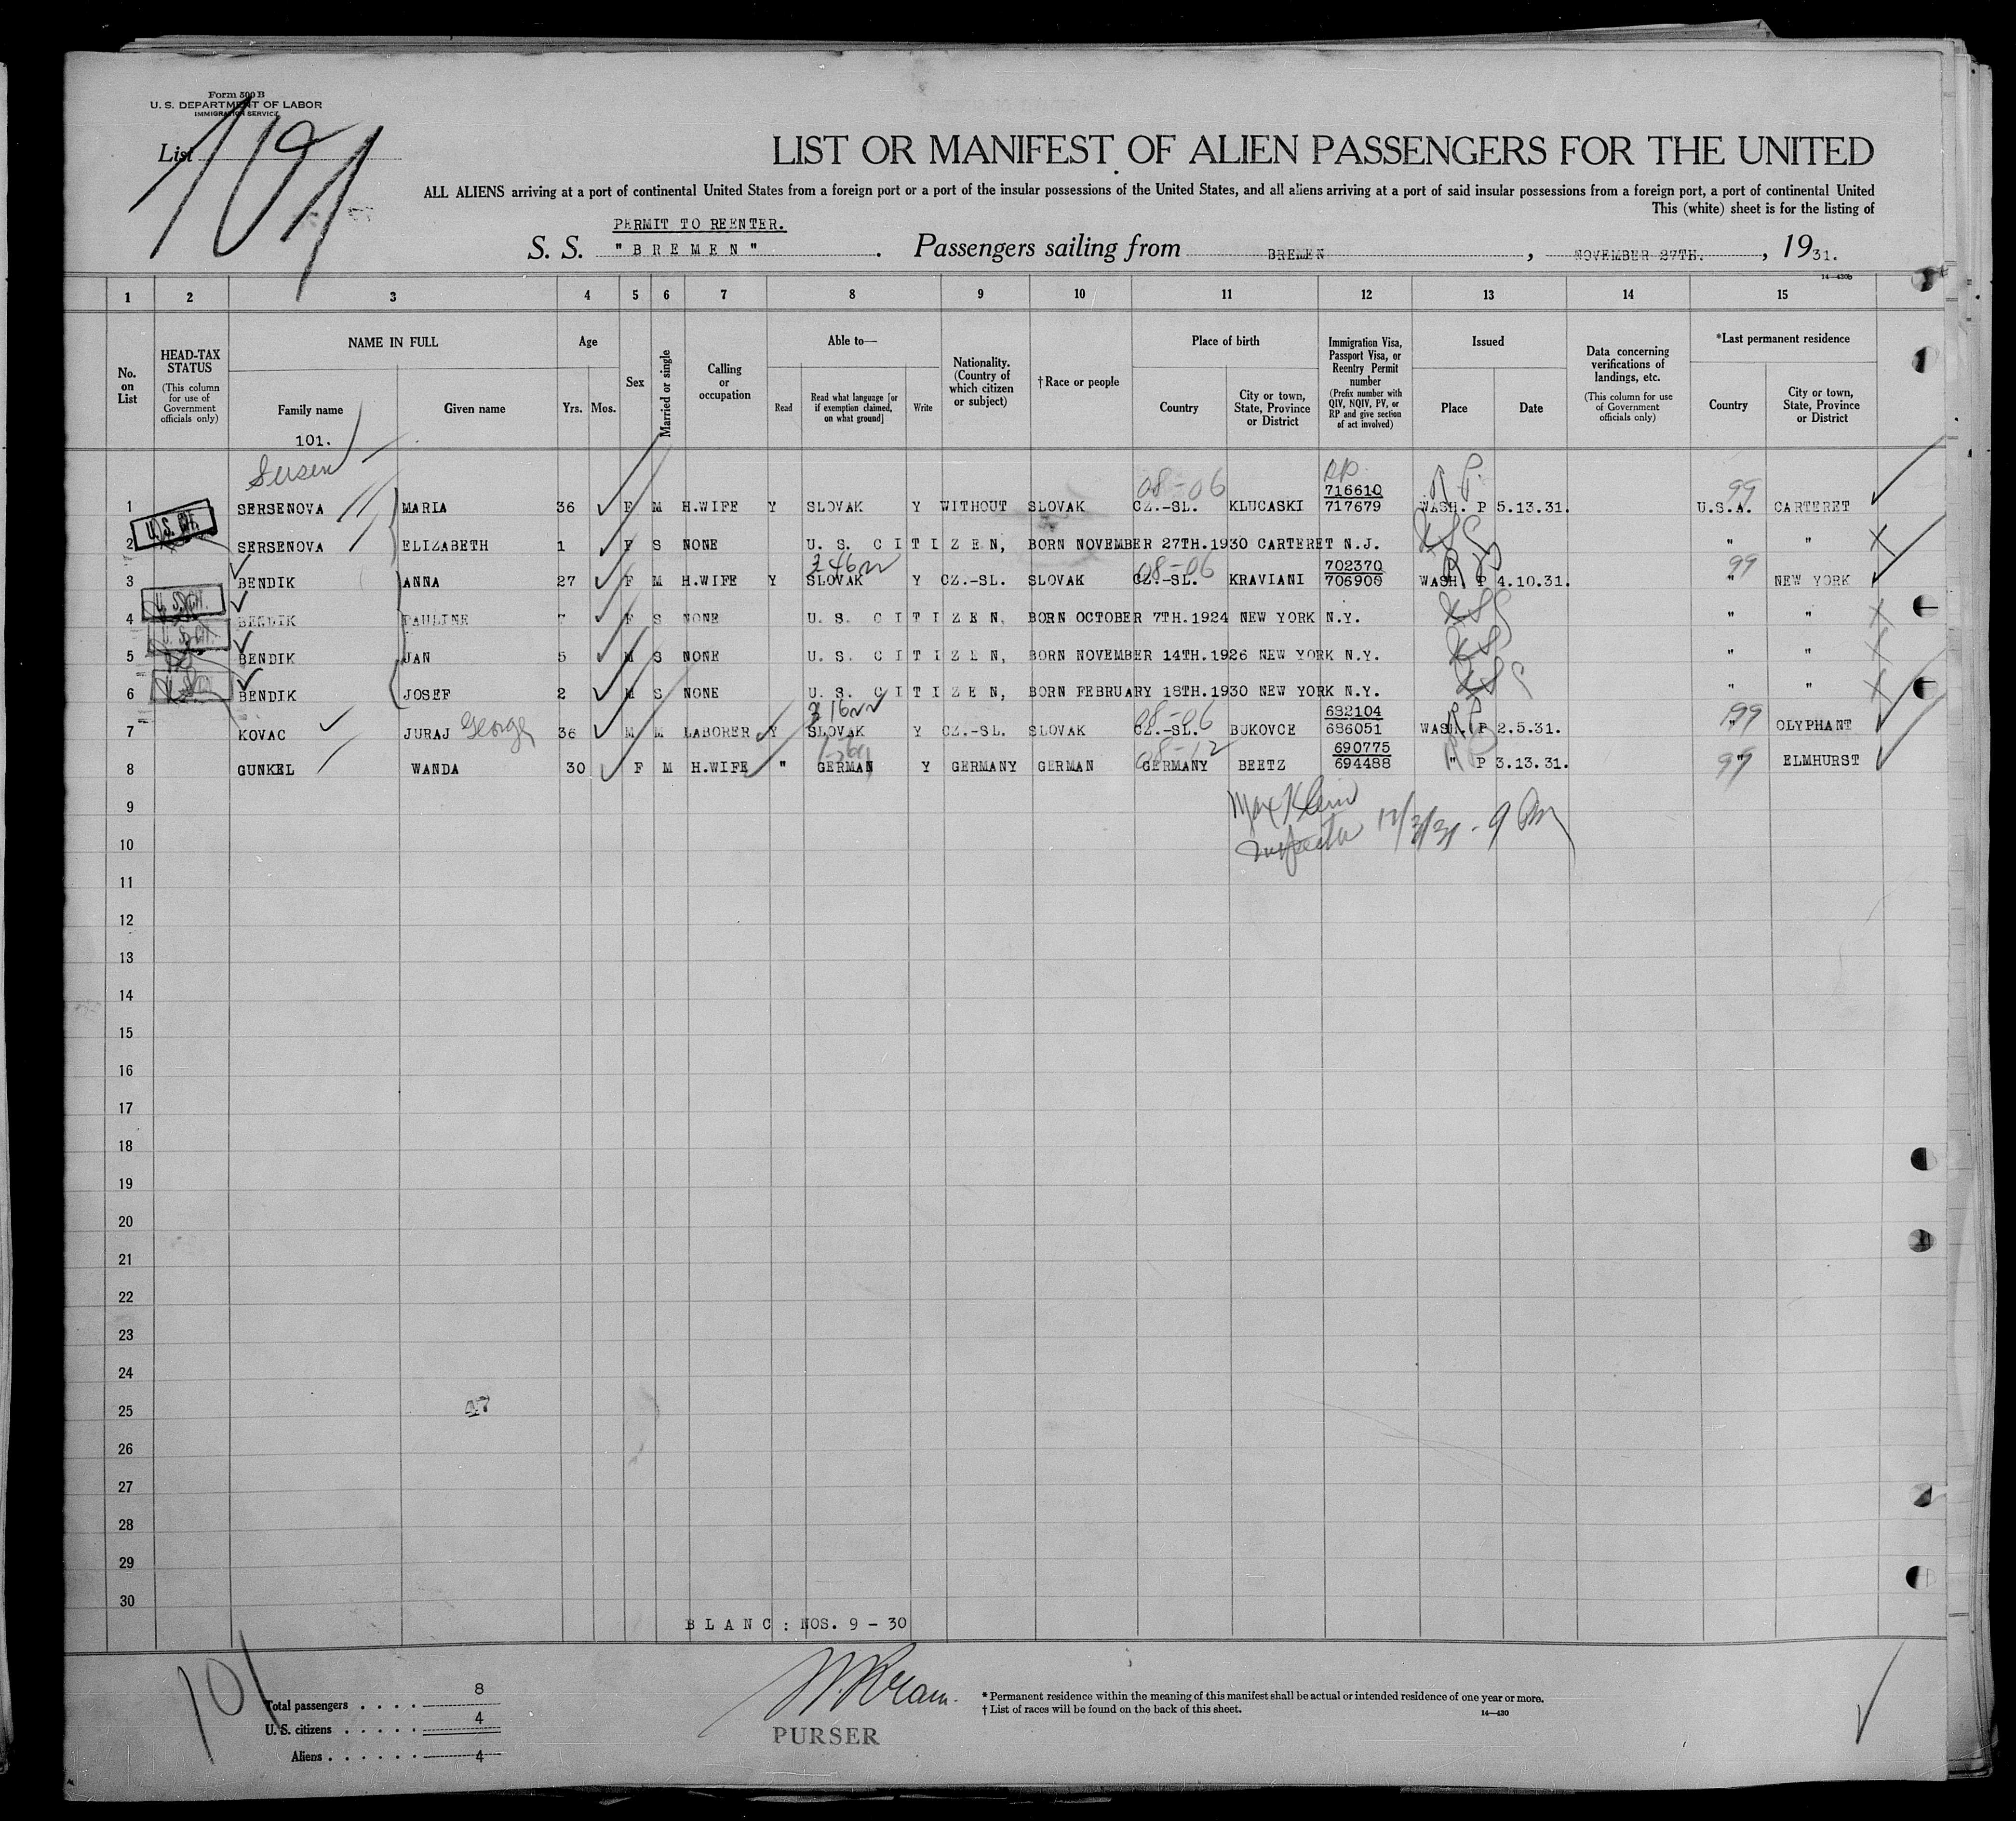 Form 500 B
U. S. DEPARTMENT OF LABOR
IMMIGRATION SERVICE
List 101
LIST OR MANIFEST OF ALIEN PASSENGERS FOR THE UNITED
ALL ALIENS arriving at a port of continental United States from a foreign port or a port of the insular possessions of the United States, and all aliens arriving at a port of said insular possessions from a foreign port, a port of continental United
This (white) sheet is for the listing of
PERMIT TO REENTER.
S. S. "BREMEN". Passengers sailing from BREMEN, NOVEMBER 27TH., 1931.
14—430b
1 2 3 4 5 6 7 8 9 10 11 12 13 14 15
No. on List
HEAD-TAX STATUS (This column for use of Government officials only)
NAME IN FULL
Family name
Given name
101.
Age
Yrs. Mos.
Sex
Married or single
Calling or occupation
Able to—
Read
Read what language [or if exemption claimed, on what ground]
Write
Nationality. (Country of which citizen or subject)
†Race or people
Place of birth
Country
City or town, State, Province or District
Immigration Visa, Passport Visa, or Reentry Permit number (Prefix number with QIV, NQIV, PV, or RP and give section of act involved)
Issued
Place
Date
Data concerning verifications of landings, etc. (This column for use of Government officials only)
*Last permanent residence
Country
City or town, State, Province or District
Sersen 08-06 RP 716610 R P. 99
1 SERSENOVA MARIA 36 F M H.WIFE Y SLOVAK Y WITHOUT SLOVAK CZ.-SL. KLUCASKI 717679 WASH. P 5.13.31. U.S.A. CARTERET
2 SERSENOVA ELIZABETH 1 F S NONE U. S. CITIZEN, BORN NOVEMBER 27TH.1930 CARTERET N.J. " "
08-06 702370 99
3 BENDIK ANNA 27 F M H.WIFE Y SLOVAK Y CZ.-SL. SLOVAK CZ.-SL. KRAVIANI 706900 WASH. P 4.10.31. " NEW YORK
4 BENDIK PAULINE 7 F S NONE U. S. CITIZEN, BORN OCTOBER 7TH.1924 NEW YORK N.Y. " "
5 BENDIK JAN 5 M S NONE U. S. CITIZEN, BORN NOVEMBER 14TH.1926 NEW YORK N.Y. " "
6 BENDIK JOSEF 2 M S NONE U. S. CITIZEN, BORN FEBRUARY 18TH.1930 NEW YORK N.Y. " "
08-06 682104 99
7 KOVAC JURAJ George 36 M M LABORER Y SLOVAK Y CZ.-SL. SLOVAK CZ.-SL. BUKOVCE 686051 WASH. P 2.5.31. " OLYPHANT
08-12 690775 99
8 GUNKEL WANDA 30 F M H.WIFE " GERMAN Y GERMANY GERMAN GERMANY BEETZ 694488 " P 3.13.31. " ELMHURST
9 Max Klein
10 Inspector 12/3/31 - 9 PM
11
12
13
14
15
16
17
18
19
20
21
22
23
24
25 47
26
27
28
29
30
BLANC: NOS. 9 - 30
101
Total passengers . . . . 8
U. S. citizens . . . . . 4
Aliens . . . . . . 4
PURSER
* Permanent residence within the meaning of this manifest shall be actual or intended residence of one year or more.
† List of races will be found on the back of this sheet.
14—430